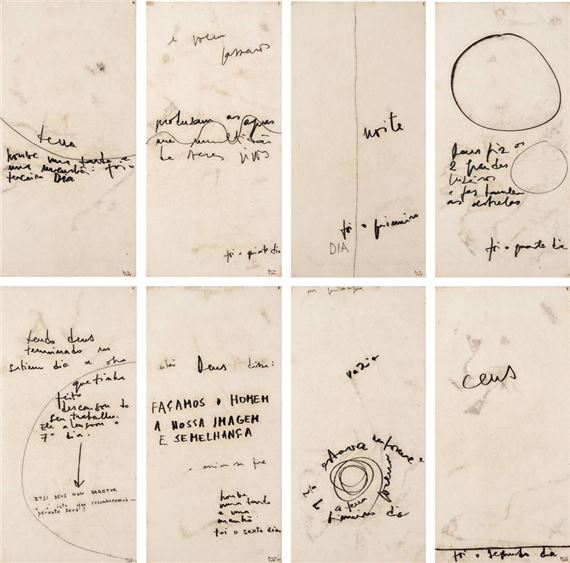 terra
houve uma tarde e
uma manhã: foi o
terceiro DIA
e voem
pássaros
produzam as águas
uma multidão
de seres vivos
foi o quinto dia
noite
foi o primeiro
DIA
Deus fiz os
2 grandes
luzeiros
e fez também
as estrelas
foi o quarto dia
tendo deus
terminado no
sétimo dia a obra
que tinha
feito
descansou do
seu trabalho.
Ele abençoou o
7º dia.
ETSI DEUS NON DARETUR
Deus disse:
FAÇAMOS O HOMEM
A NOSSA IMAGEM
E SEMELHANÇA
e assim se fez
houve
uma tarde
e uma
manhã
foi o sexto dia
vazia
estava informe e
a terra
ceus
foi o segundo dia